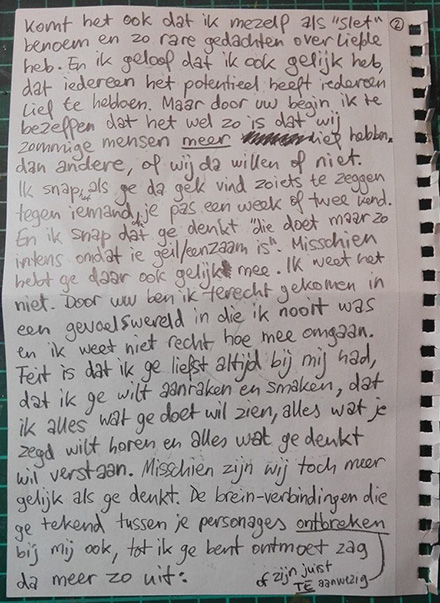 ②
Komt het ook dat ik mezelf als "slet"
benoem en zo rare gedachten over liefde
heb. En ik geloof dat ik ook gelijk heb,
dat iedereen het potentieel heeft iedereen
lief te hebben. Maar door uw begin ik te
bezeffen dat het wel zo is dat wij
zommige mensen meer lief hebben
dan andere, of wij da willen of niet.
Ik snap het als ge da gek vind zoiets te zeggen
tegen iemand je pas een week of twee kend.
En ik snap dat ge denkt "die doet maar zo
intens omdat ie geil/eenzaam is". Misschien
hebt ge daar ook gelijk mee. Ik weet het
niet. Door uw ben ik terecht gekomen in
een gevoelswereld in die ik nooit was
en ik weet niet recht hoe mee omgaan.
Feit is dat ik ge liefst altijd bij mij had,
dat ik ge wilt aanraken en smaken, dat
ik alles wat ge doet wil zien, alles wat je
zegd wilt horen en alles wat ge denkt
wil verstaan. Misschien zijn wij toch meer
gelijk als ge denkt. De brein-verbindingen die
ge tekend tussen je personages ontbreken
bij mij ook, tot ik ge bent ontmoet zag
da meer zo uit:
of zijn juist
TE aanwezig